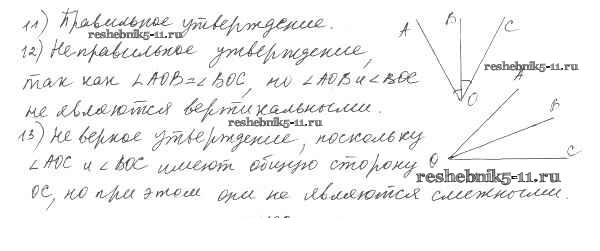 11) Правильное утверждение.
reshebnik5-11.ru.
12) Неправильное утверждение,
так как ∠AOB=∠BOC, но ∠AOB и ∠BOC
не являются вертикальными.
reshebnik5-11.ru
13) Неверное утверждение, поскольку
∠AOC и ∠BOC имеют общую сторону
OC, но при этом они не являются смежными.
A B C
reshebnik5-11.ru
O
A
B
O C
reshebnik5-11.ru